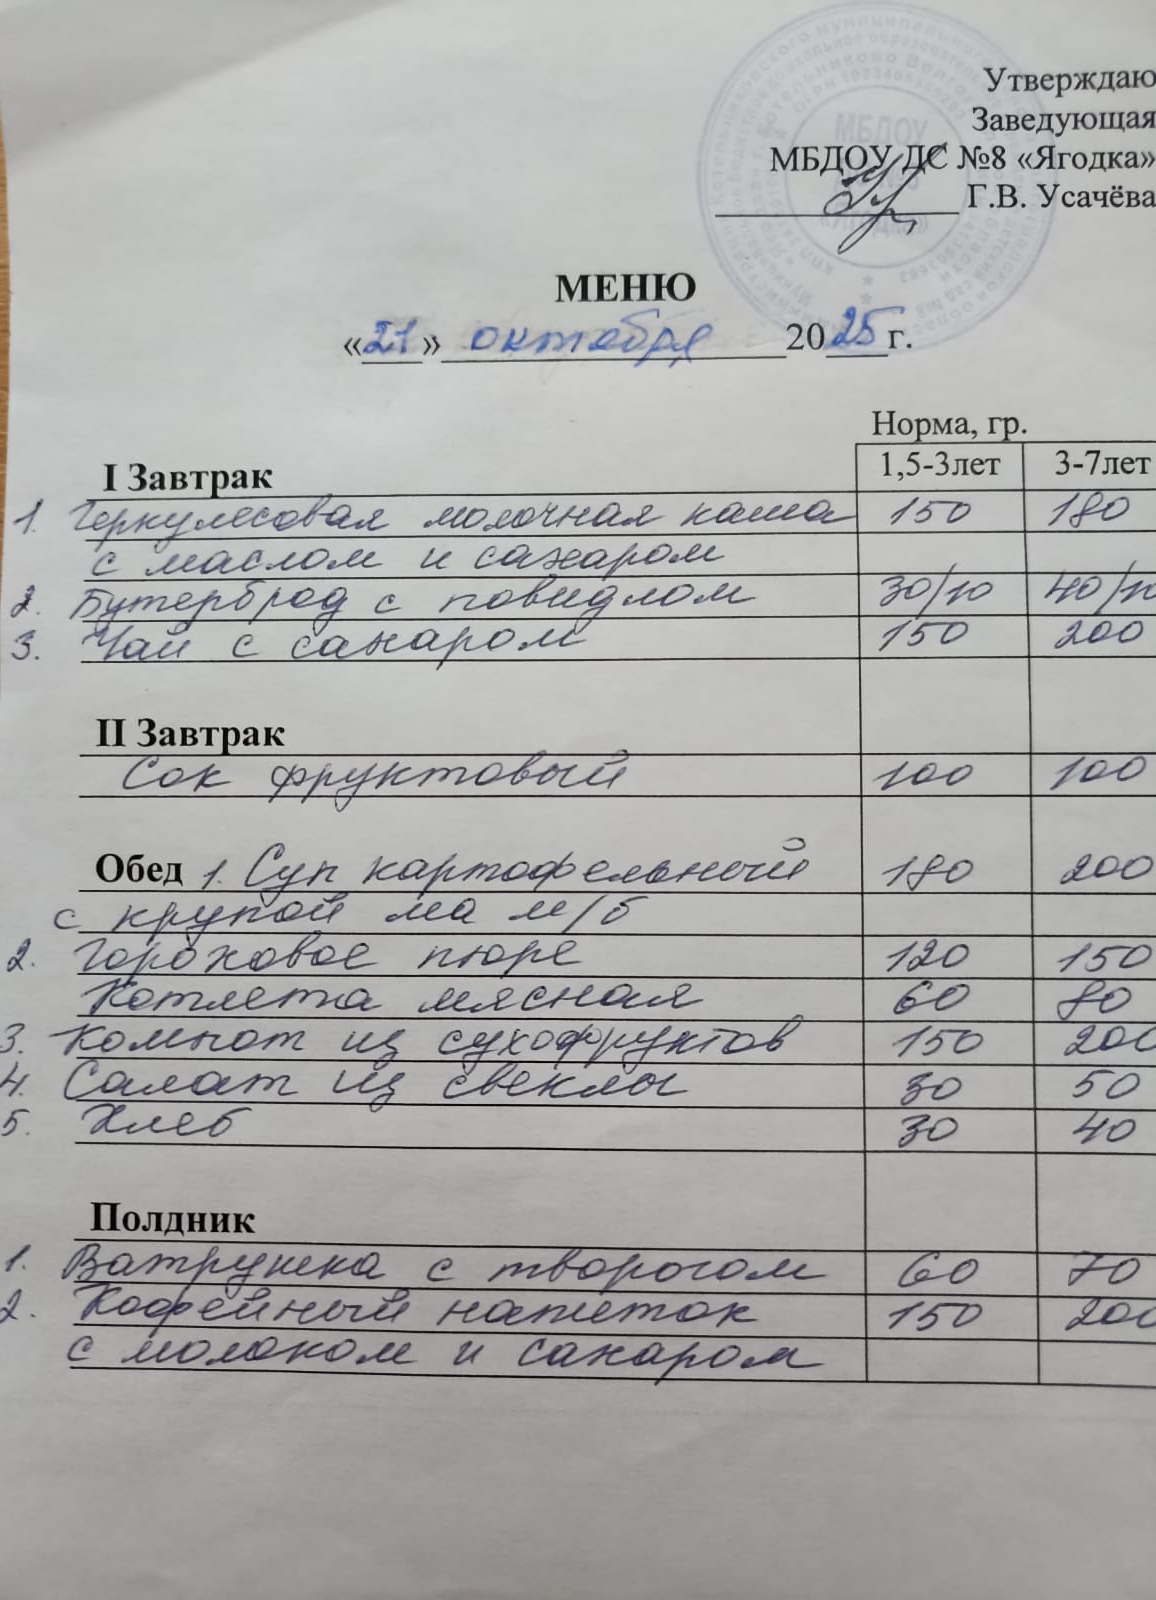 Утверждаю
Заведующая
МБДОУ ДС №8 «Ягодка»
Г.В. Усачёва
МБДОУ
МЕНЮ
«21» октября 2025 г.
Норма, гр.
I Завтрак 1,5-3лет 3-7лет
1. Геркулесовая молочная каша 150 180
с маслом и сахаром
2. Бутерброд с повидлом 30/10 40/10
3. Чай с сахаром 150 200
II Завтрак
Сок фруктовый 100 100
Обед 1. Суп картофельный 180 200
с крупой на м/б
2. Гороховое пюре 120 150
Котлета мясная 60 80
3. Компот из сухофруктов 150 200
4. Салат из свеклы 30 50
5. Хлеб 30 40
Полдник
1. Ватрушка с творогом 60 70
2. Кофейный напиток 150 200
с молоком и сахаром